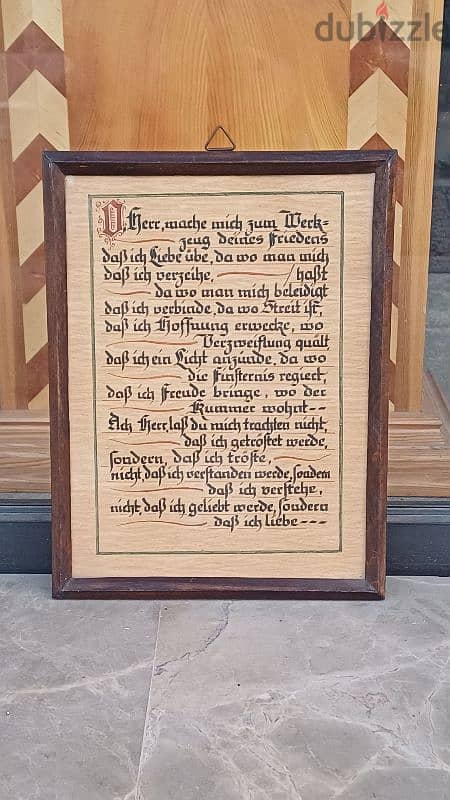 dubizzle
O Herr, mache mich zum Werk-
zeug deines Friedens
daß ich Liebe übe, da wo man mich
daß ich verzeihe, / haßt
da wo man mich beleidigt
daß ich verbinde, da wo Streit ist,
daß ich Hoffnung erwecke, wo
Verzweiflung quält
daß ich ein Licht anzünde, da wo
die Finsternis regiert,
daß ich Freude bringe, wo der
Kummer wohnt--
Ach Herr, laß du mich trachten nicht,
daß ich getröstet werde,
sondern, daß ich tröste,
nicht, daß ich verstanden werde, sondern
daß ich verstehe,
nicht, daß ich geliebt werde, sondern
daß ich liebe---